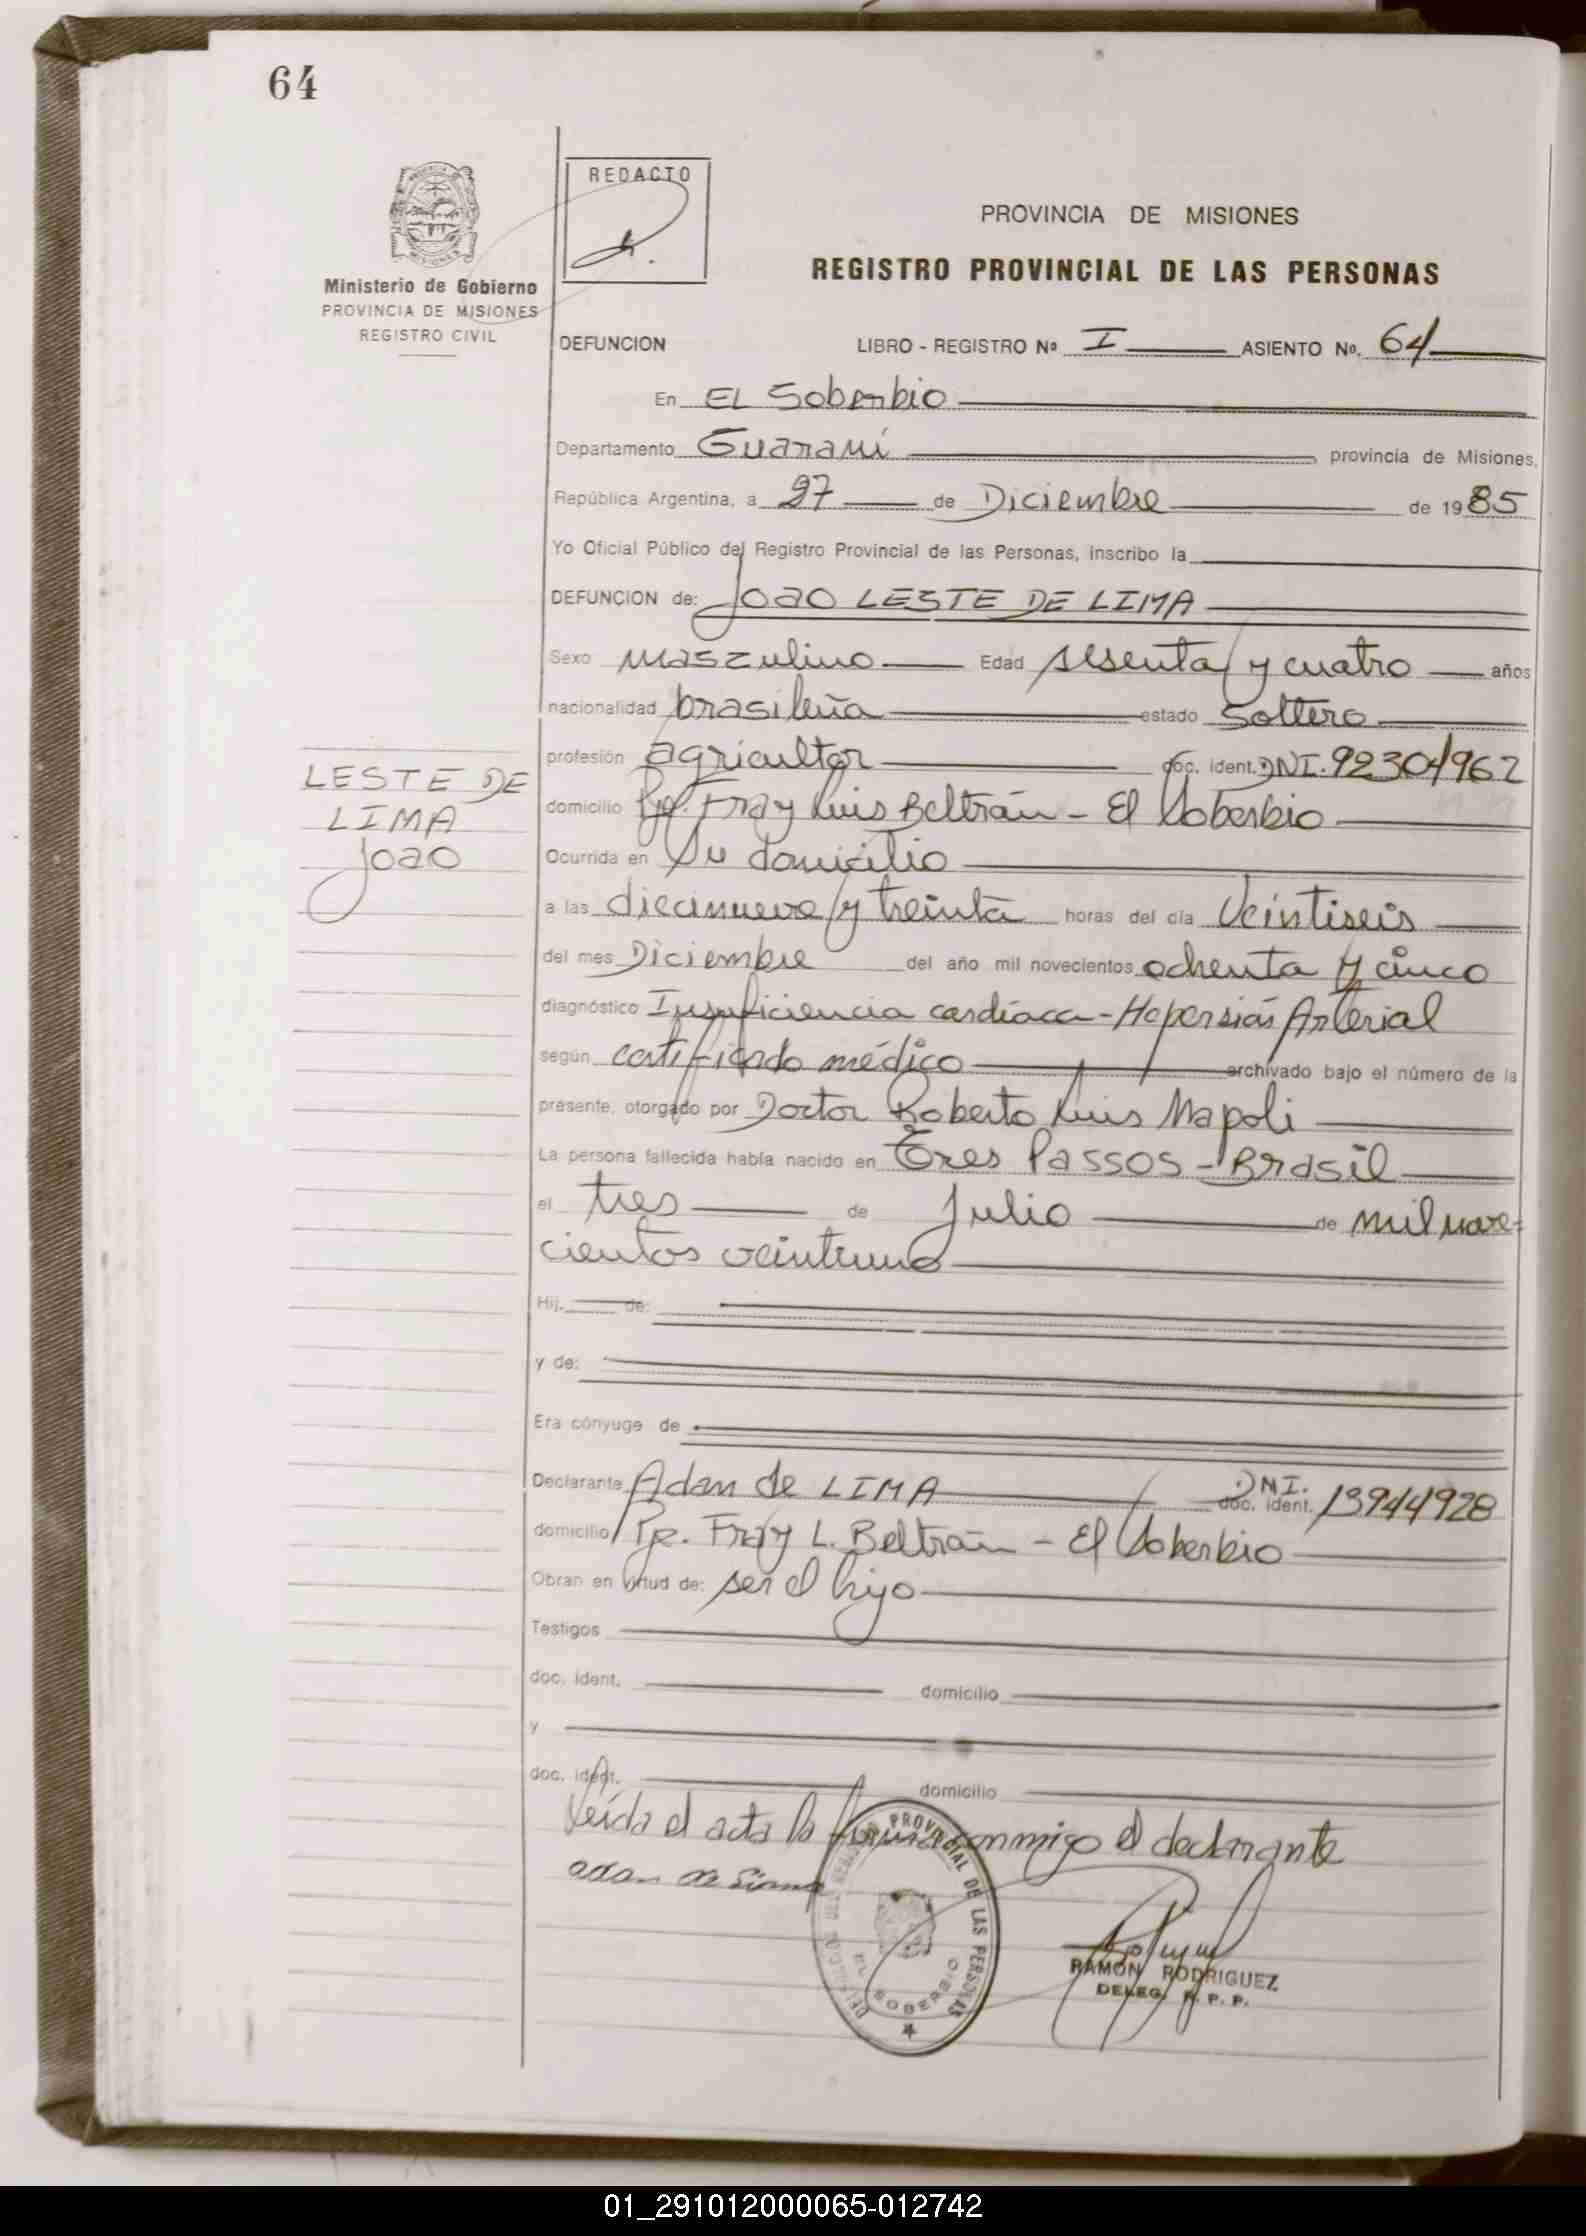 64
REDACTO
PROVINCIA DE MISIONES
REGISTRO PROVINCIAL DE LAS PERSONAS
Ministerio de Gobierno
PROVINCIA DE MISIONES
REGISTRO CIVIL
DEFUNCION LIBRO - REGISTRO Nº I ASIENTO No. 64
En EL Soberbio
Departamento Guaraní provincia de Misiones,
República Argentina, a 27 de Diciembre de 1985
Yo Oficial Público del Registro Provincial de las Personas, inscribo la
DEFUNCION de: Joao LESTE DE LIMA
Sexo maszulino Edad sesenta y cuatro años
nacionalidad brasileña estado Soltero
profesión agricultor doc. ident. DNI. 92304962
LESTE DE
LIMA
Joao
domicilio Pje. Fray Luis Beltrán - El Soberbio
Ocurrida en Su domicilio
a las diecinueve y treinta horas del día Veintiseis
del mes Diciembre del año mil novecientos ochenta y cinco
diagnóstico Insuficiencia cardíaca - Hepersión Arterial
según certificado médico archivado bajo el número de la
presente, otorgado por Doctor Roberto Luis Napoli
La persona fallecida había nacido en Tres Passos - Brasil
el tres de Julio de mil nove=
cientos veintiuno
Hij. de:
y de:
Era cónyuge de
Declarante Adan de LIMA DNI. doc. ident. 13944928
domicilio Pje. Fray L. Beltrán - El Soberbio
Obran en virtud de: ser el hijo
Testigos
doc. ident. domicilio
y
doc. ident. domicilio
Leída el acta la firma conmigo el declarante
adan de Lima
PROVINCIAL DE LAS PERSONAS
EL SOBERBIO
RAMON RODRIGUEZ
DELEG. R. P. P.
01_291012000065-012742